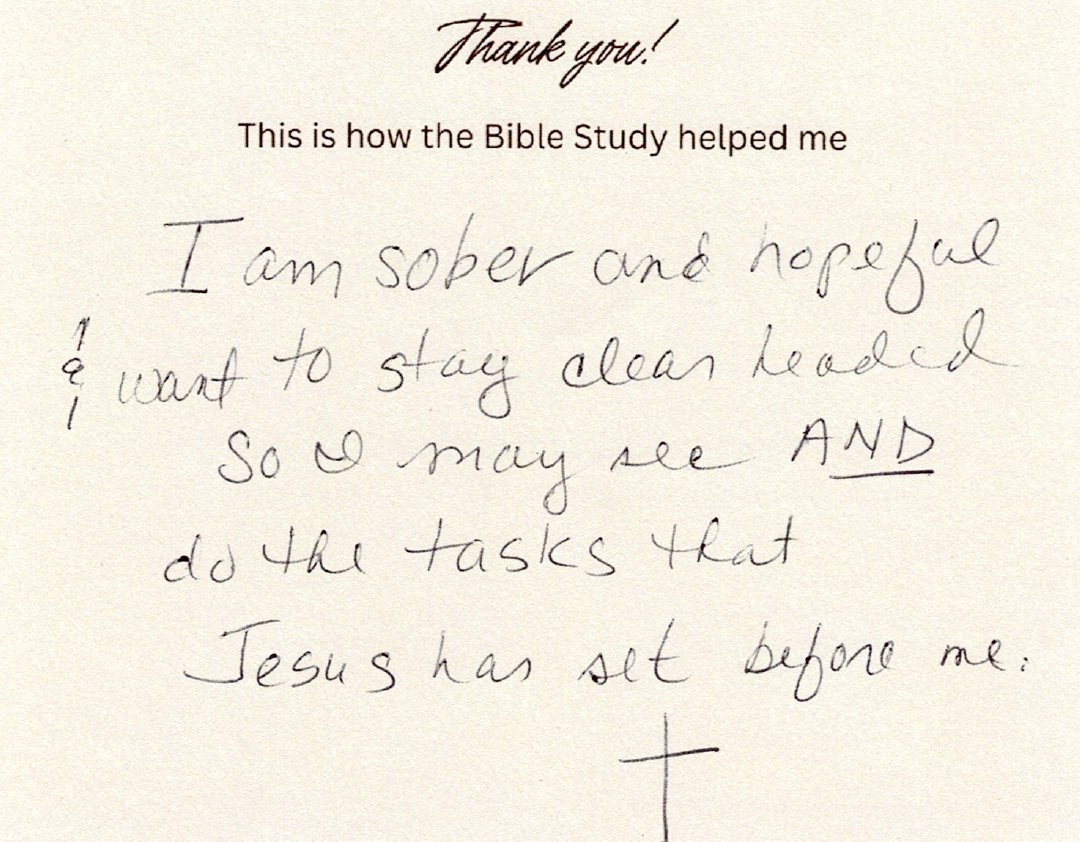 Thank you!
This is how the Bible Study helped me
I am sober and hopeful
& want to stay clear headed
so I may see AND
do the tasks that
Jesus has set before me.